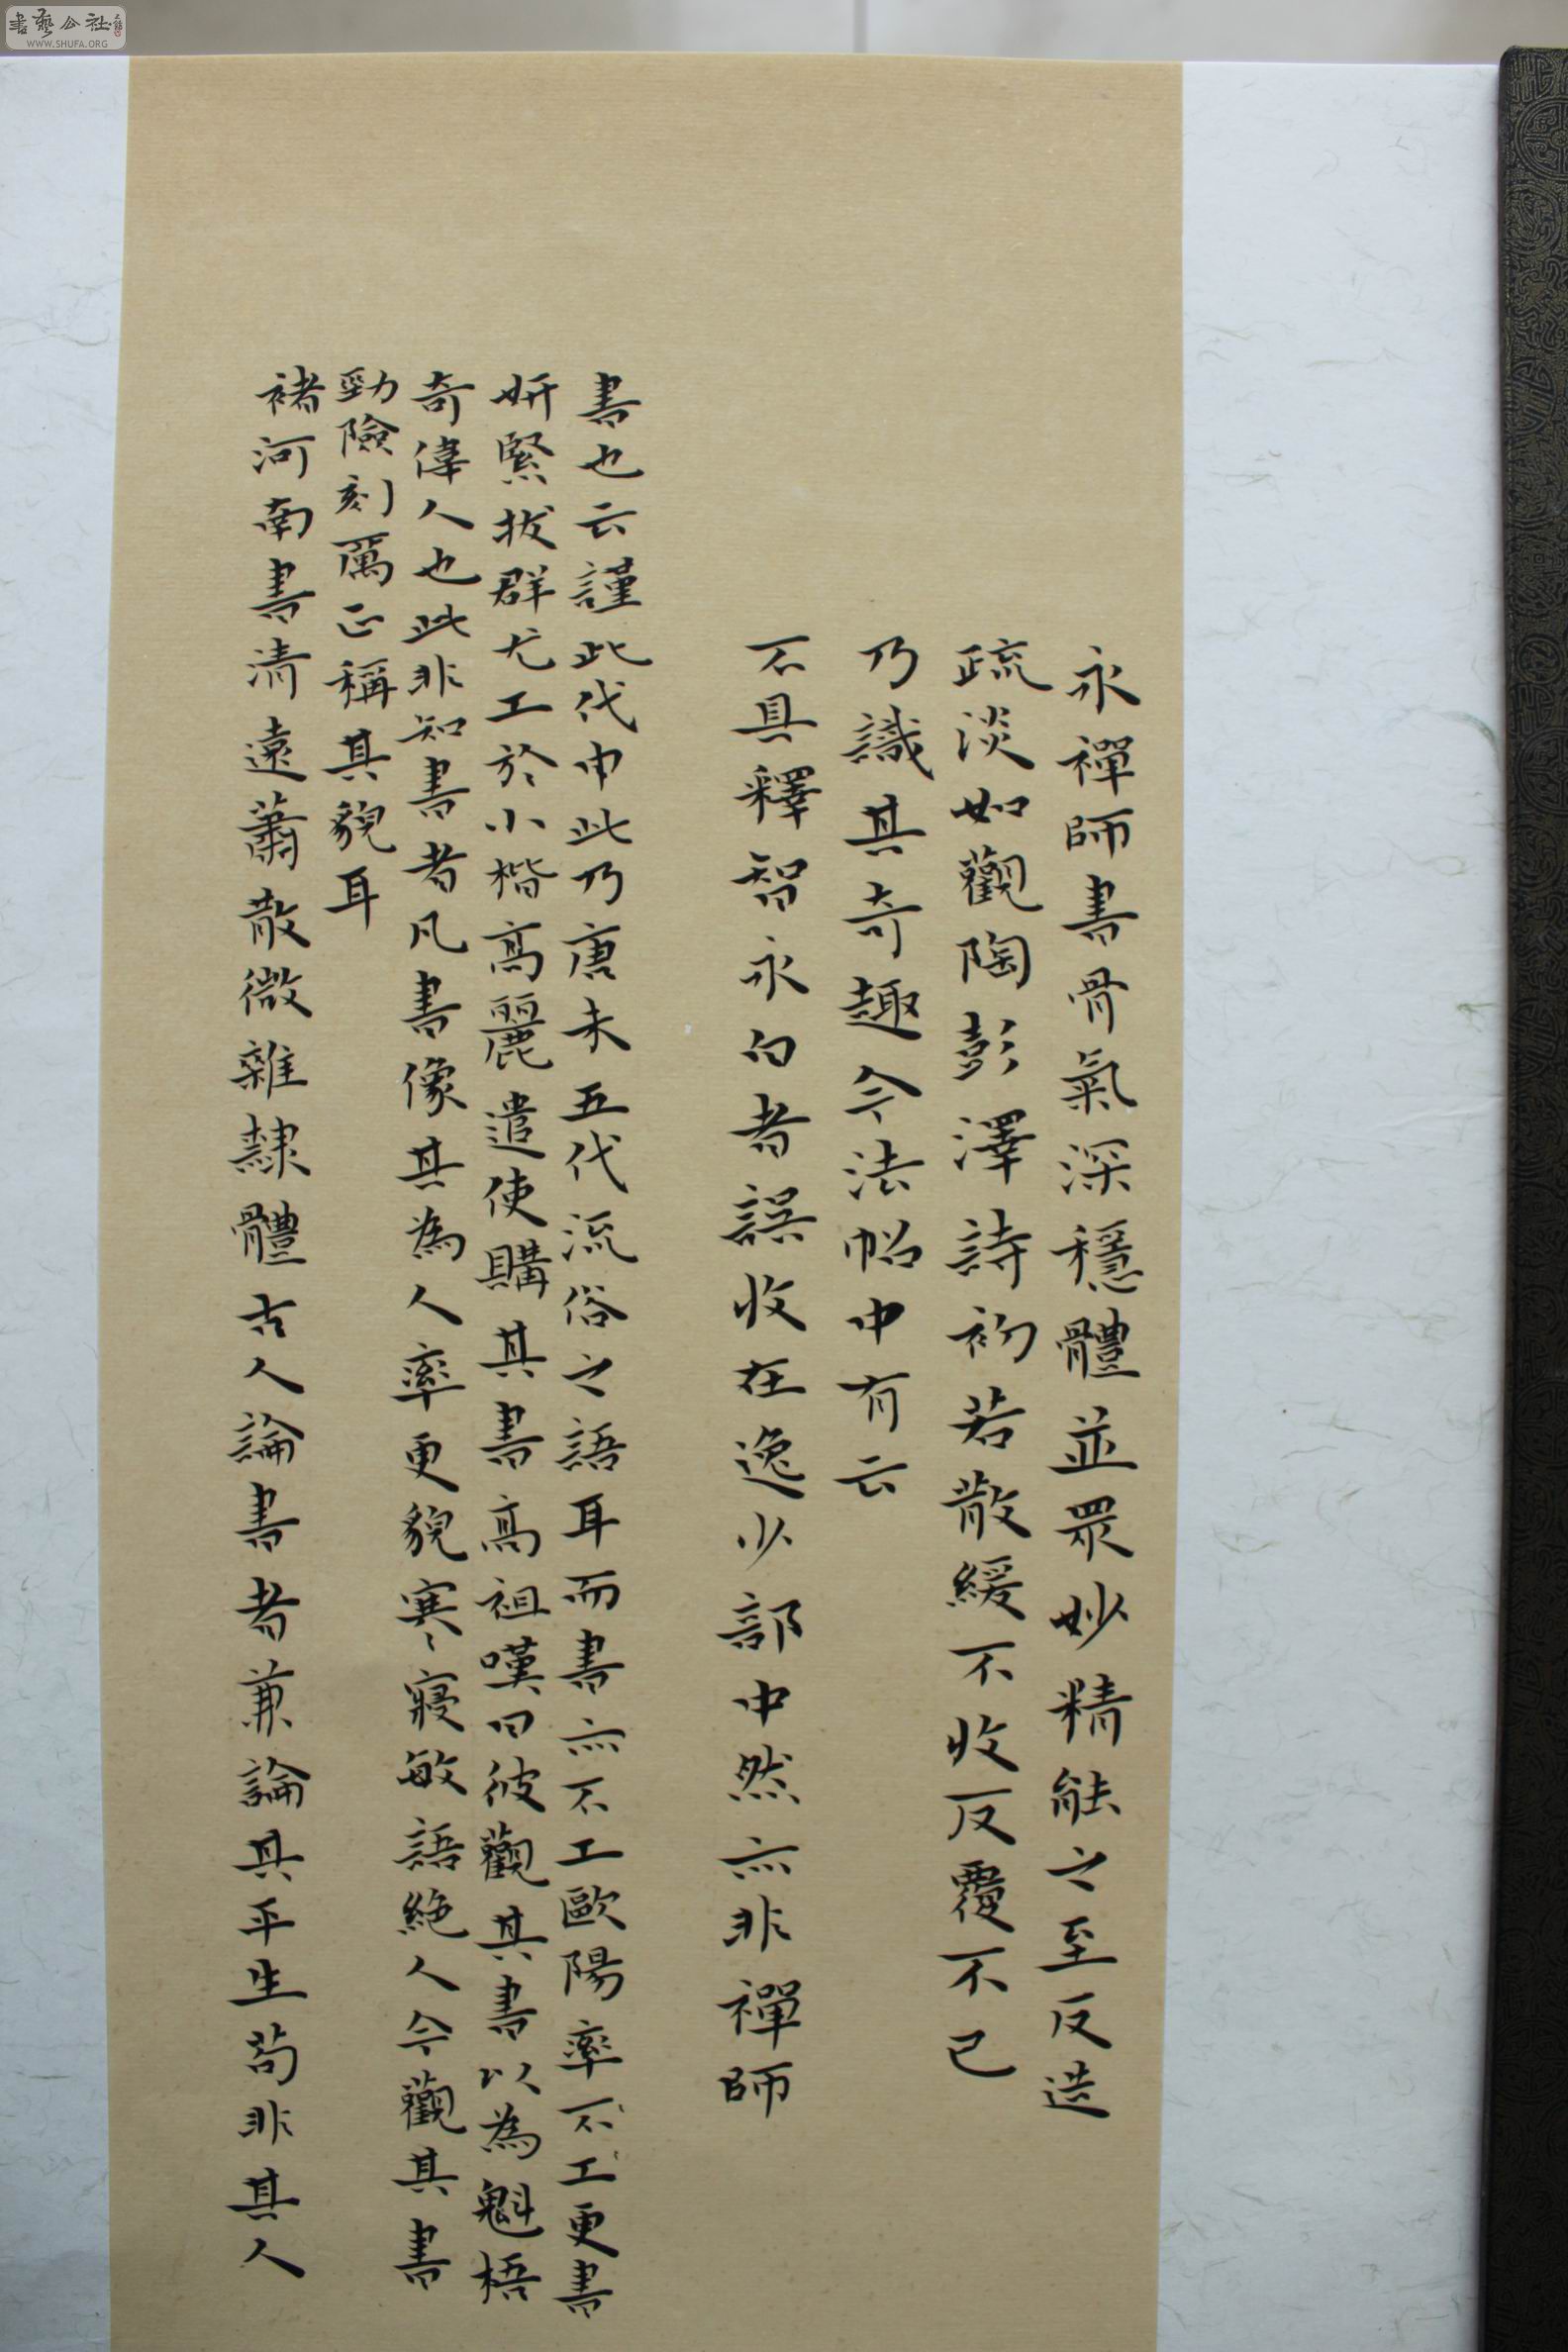 永禪師書骨氣深穩體並眾妙精能之至反造
疏淡如觀陶彭澤詩初若散緩不收反覆不已
乃識其奇趣今法帖中有云
不具釋智永白者誤收在逸少部中然亦非禪師
書也云謹此代申此乃唐未五代流俗之語耳而書亦不工歐陽率不工更書
妍緊拔群尤工於小楷高麗遣使購其書高祖嘆曰彼觀其書以為魁梧
奇偉人也此非知書者凡書像其為人率更貌寒寢敏語絕人今觀其書
勁險刻厲正稱其貌耳
褚河南書清遠蕭散微雜隸體古人論書者兼論其平生苟非其人
書藝公社
WWW.SHUFA.ORG